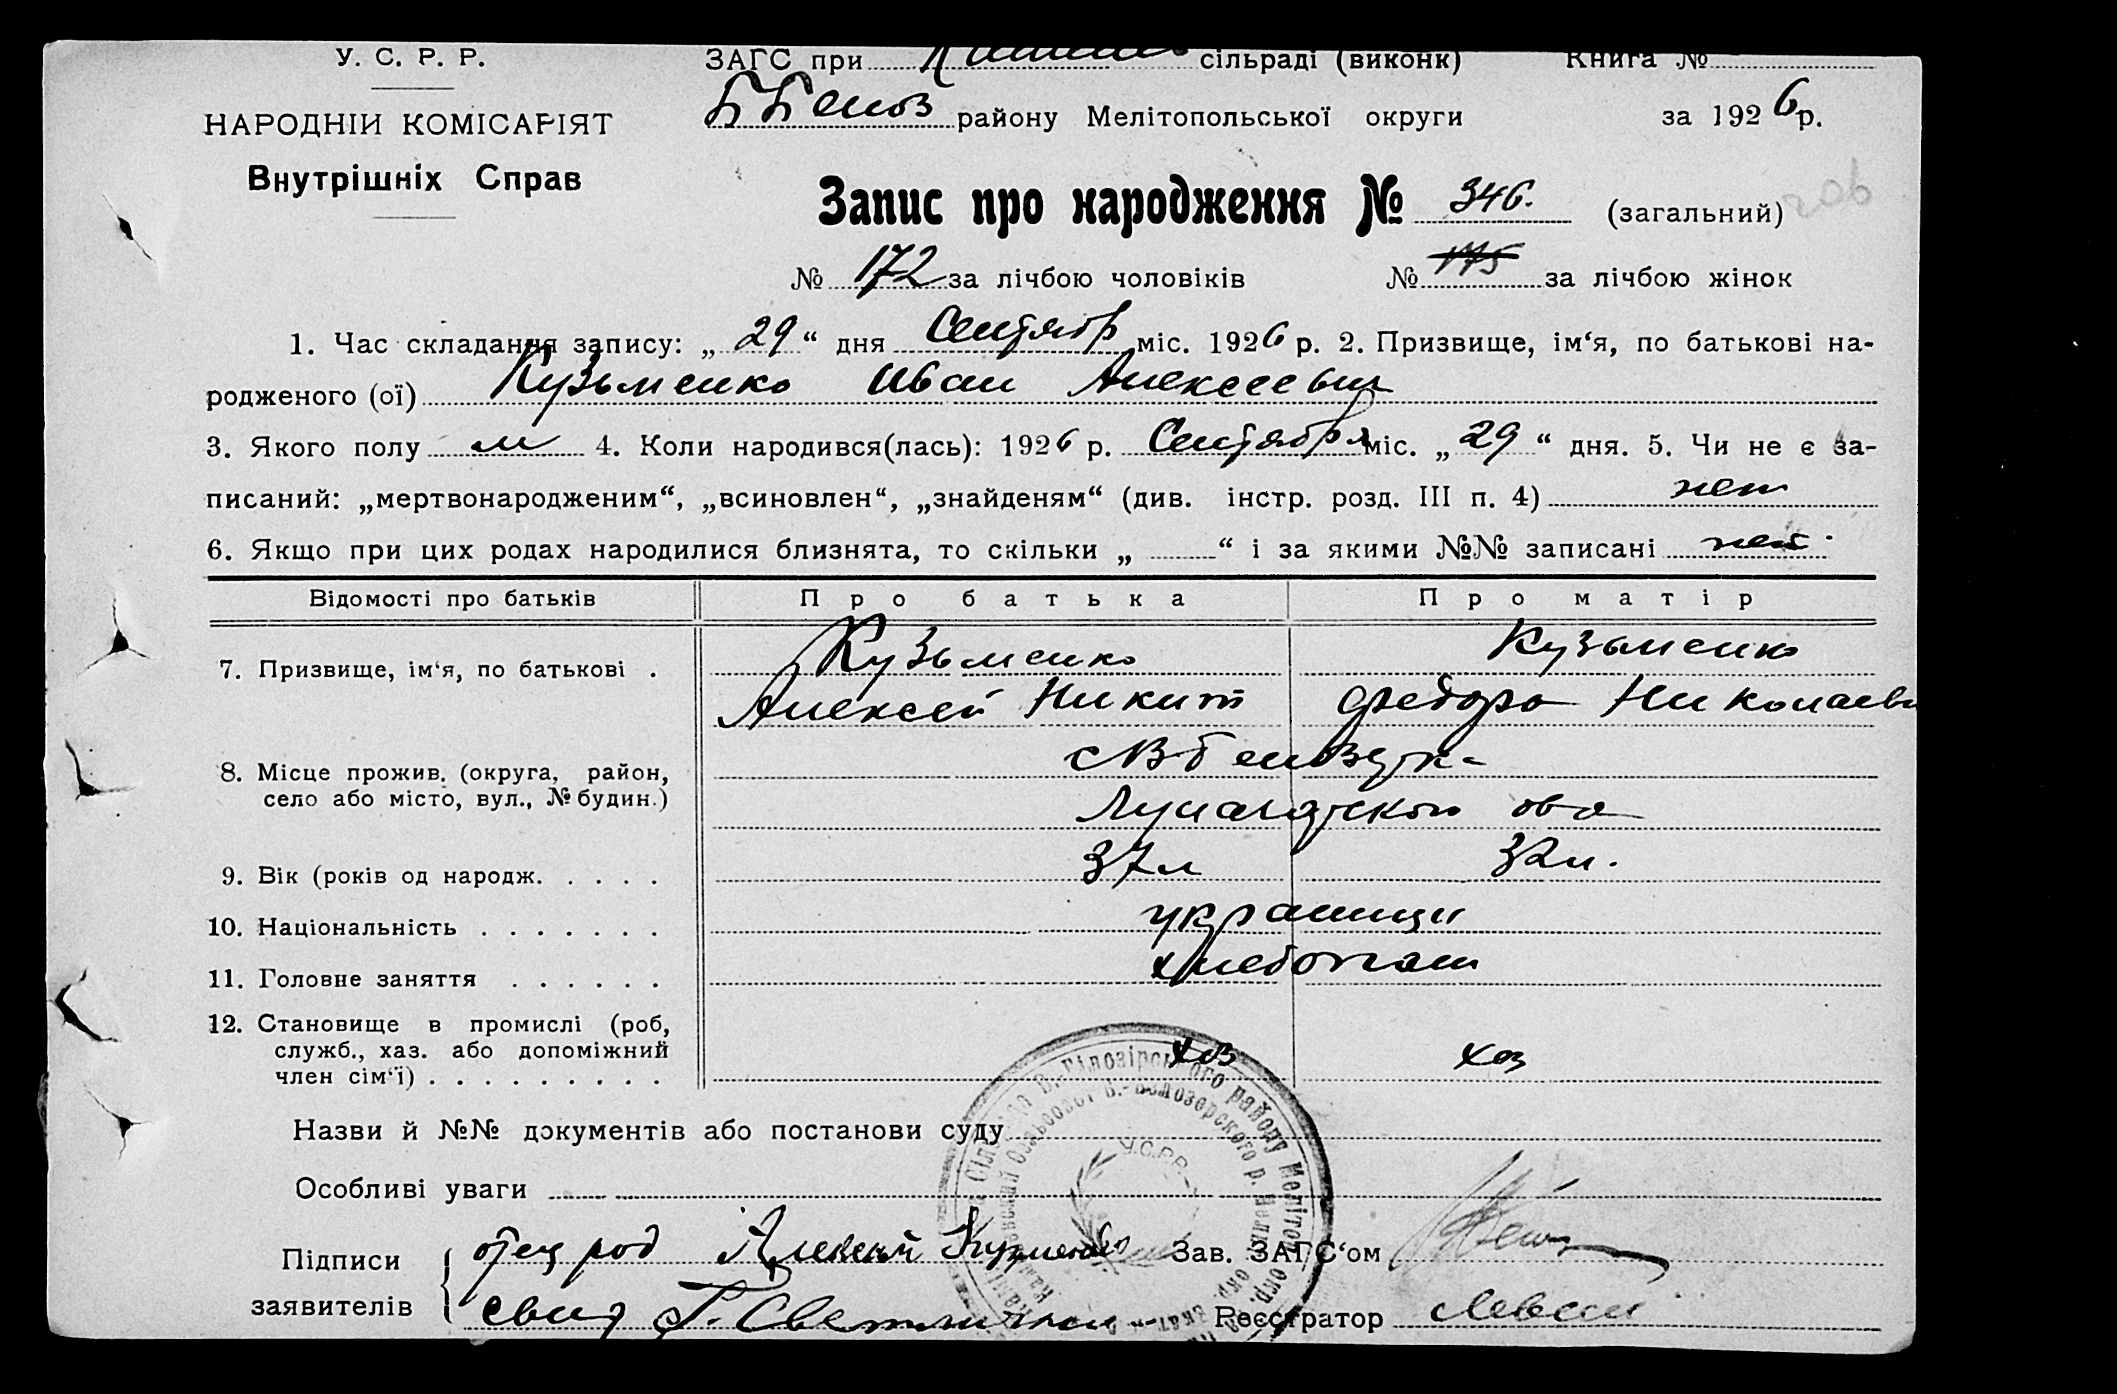 У. С. Р. Р.
ЗАГС при сільраді (виконк) Книга №
НАРОДНІЙ КОМІСАРІЯТ
району Мелітопольської округи за 1926 р.
Внутрішніх Справ
Запис про народження № 346. (загальний)
№ 172 за лічбою чоловіків № 175 за лічбою жінок
1. Час складання запису: „ 29 “ дня Сентябр міс. 1926 р. 2. Призвище, ім‘я, по батькові на-
родженого (ої) Кузьменко Иван Алексеевич
3. Якого полу м 4. Коли народився(лась): 1926 р. Сентября міс. „ 29 “ дня. 5. Чи не є за-
писаний: „мертвонародженим“, „всиновлен“, „знайденям“ (див. інстр. розд. III п. 4) нет
6. Якщо при цих родах народилися близнята, то скільки „ “ і за якими №№ записані нет
Відомості про батьків Про батька Про матір
Кузьменко Кузьменко
7. Призвище, ім‘я, по батькові .
Алексей Никит Федора Николаевн
8. Місце прожив. (округа, район,
село або місто, вул., № будин.)
37л 32л.
9. Вік (років од народж. . . . .
10. Національність . . . . . . . украинцы
11. Головне заняття . . . . . . хлебопаш
12. Становище в промислі (роб,
служб., хаз. або допоміжний хоз хоз
член сім‘ї) . . . . . . . . . .
Назви й №№ документів або постанови суду
Особливі уваги
У.С.Р.Р.
Підписи отец род Алексей Кузменко Зав. ЗАГС‘ом
заявителів свид Г. Реєстратор